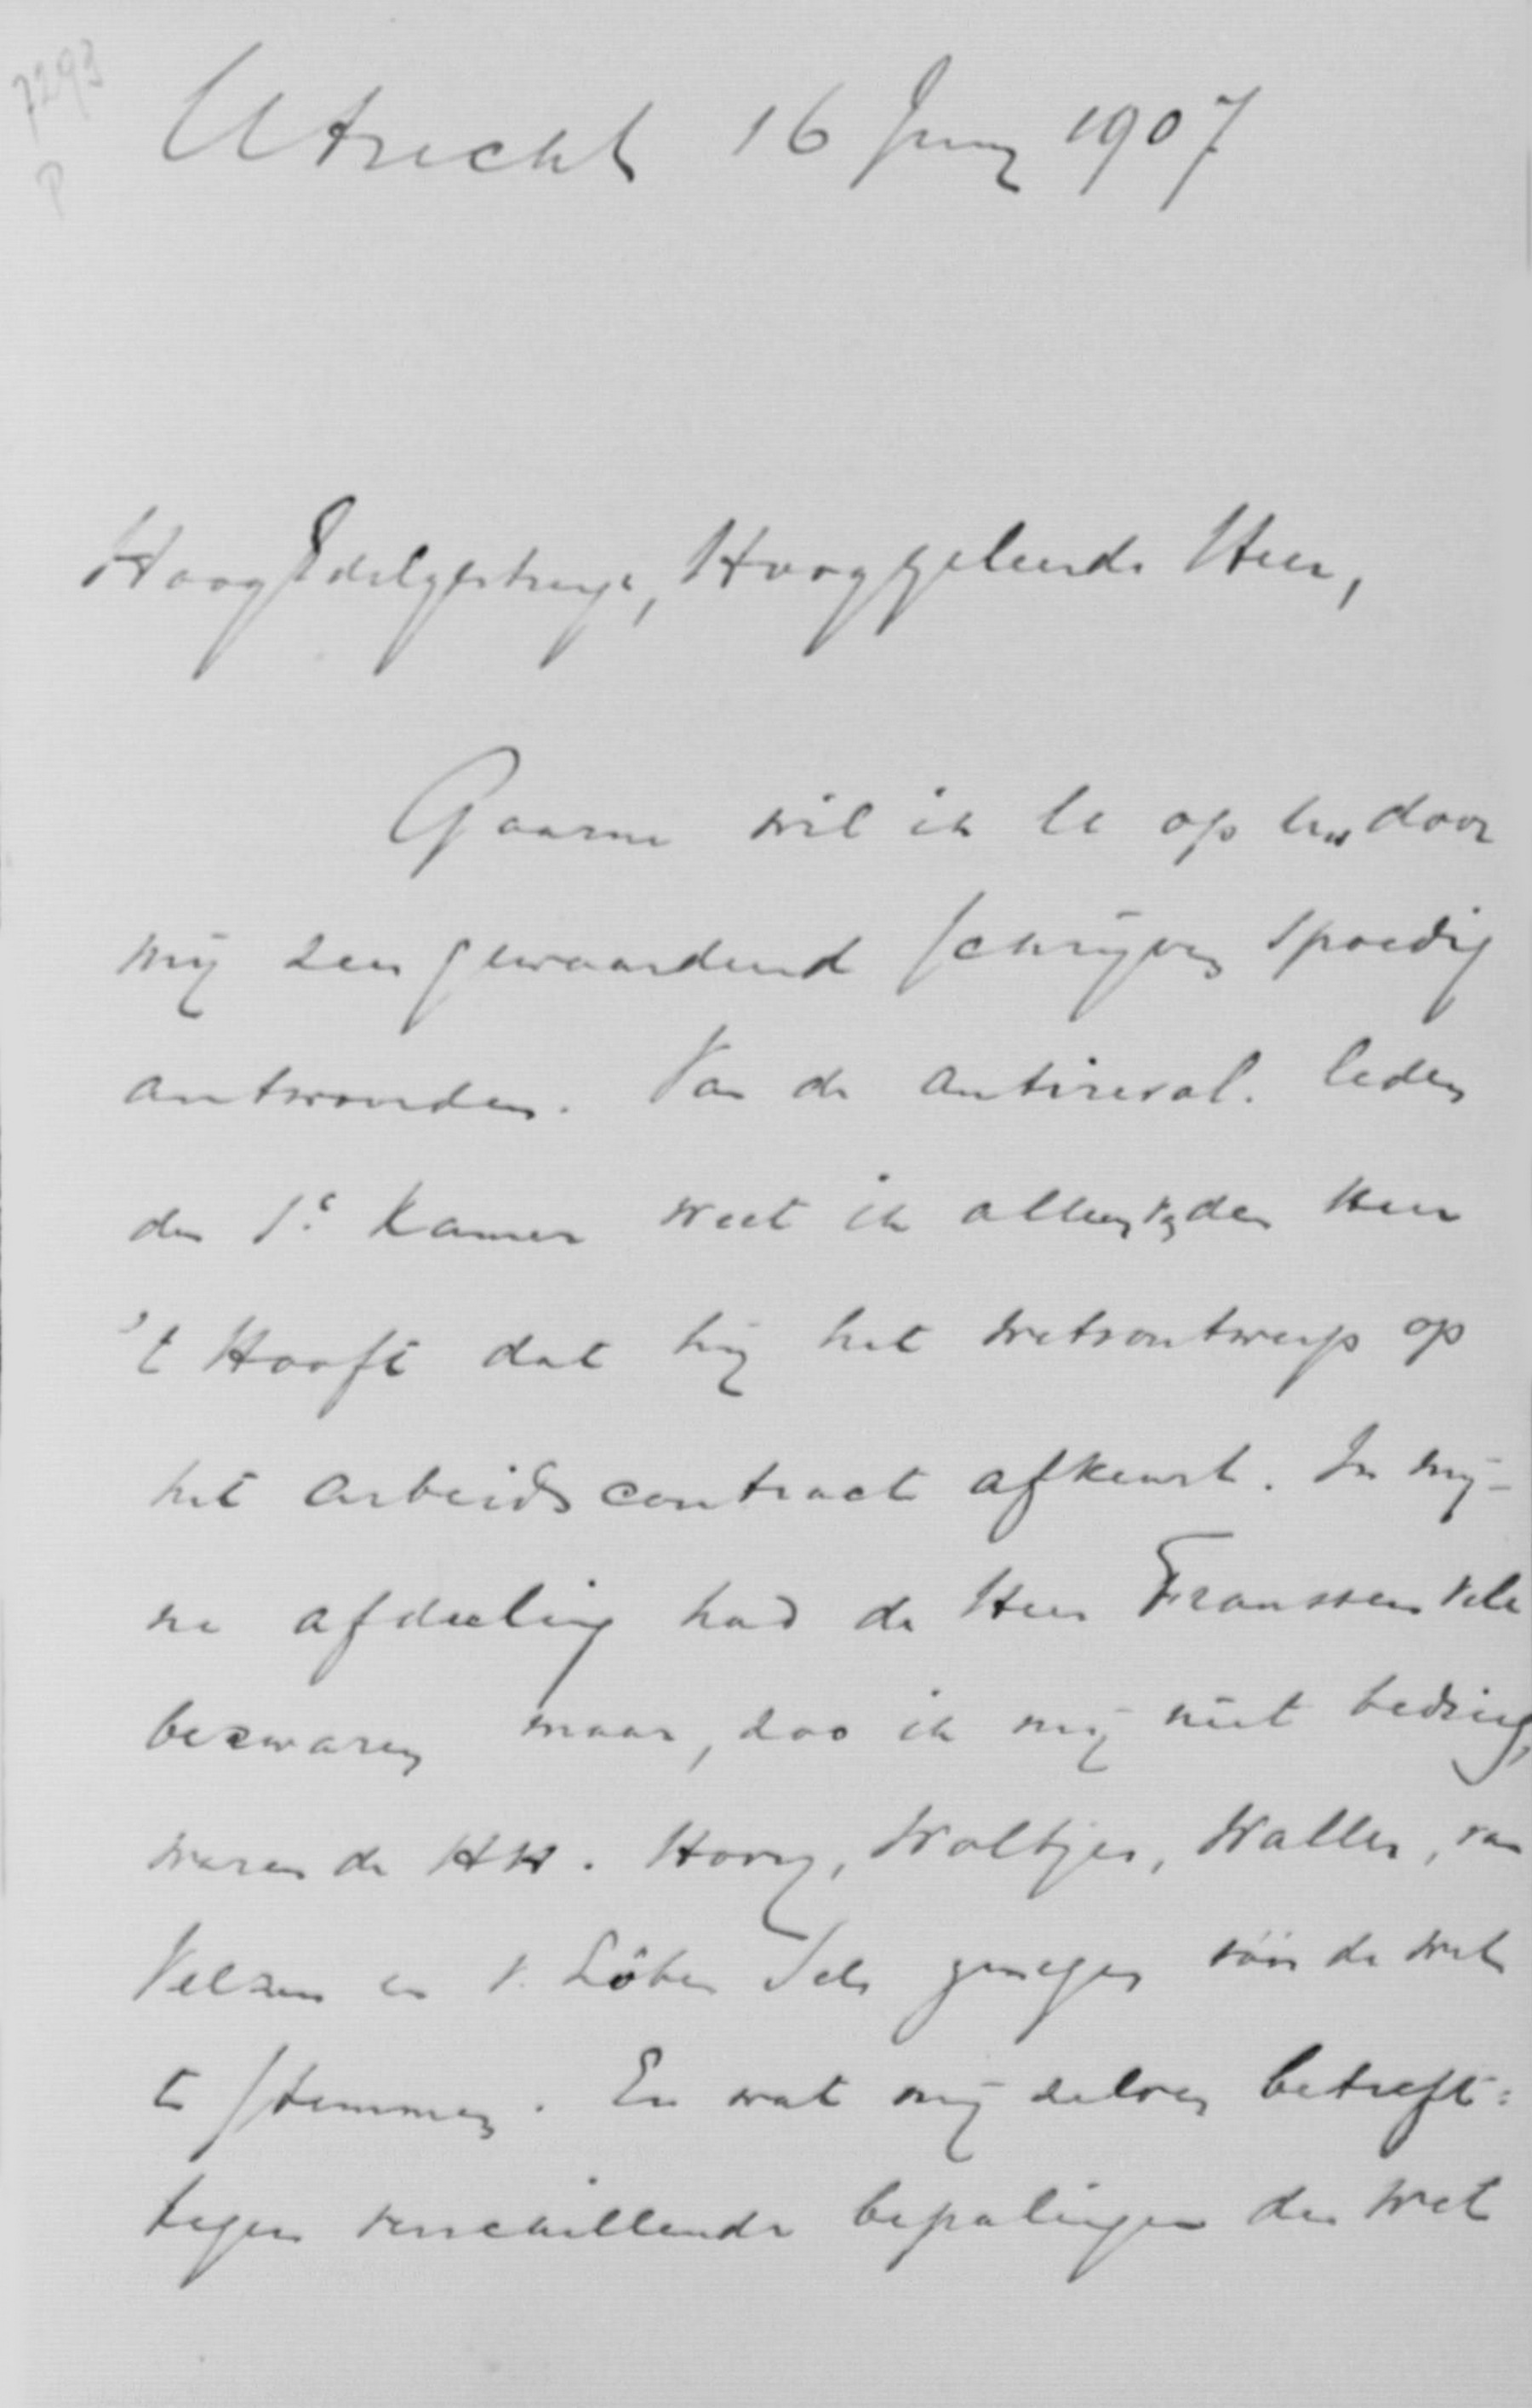 7293
P
Utrecht 16 Juny 1907
HoogEdelgestrenge, Hooggeleerde Heer,
Gaarne wil ik U op Uw door
mij zeer gewaardeerd schrijven spoedig
antwoorden. Van de antirevol. leden
der 1e Kamer weet ik alleen v. den Heer
't Hooft dat hij het wetsontwerp op
het arbeidscontract afkeurt. In mij-
ne afdeeling had de Heer Franssen vele
bezwaren maar, zoo ik mij niet bedrieg,
waren de HH. Hovy, Woltjer, Waller, van
Velzen en v. Löben Sels genegen vóór de wet
te stemmen. En wat mij zelven betreft:
tegen verschillende bepalingen der wet